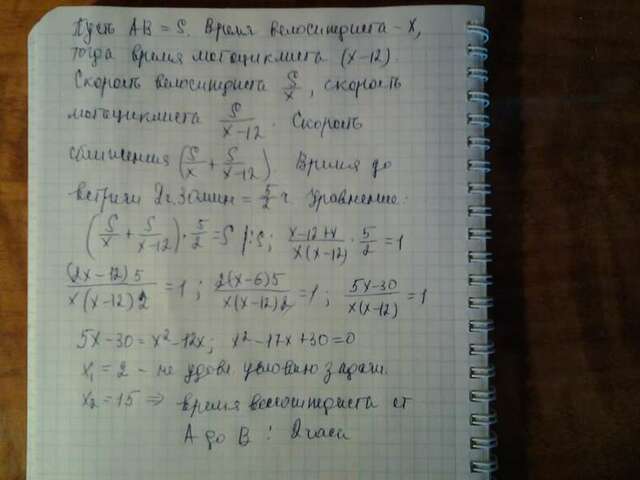 Пусть AB = S. Время велосипедиста - x,
тогда время мотоциклиста (x-12).
Скорость велосипедиста S/x, скорость
мотоциклиста S/(x-12). Скорость
сближения (S/x + S/(x-12)) Время до
встречи 2ч.30мин = 5/2 ч. Уравнение:
(S/x + S/(x-12)) · 5/2 = S |:S; (x-12+x)/(x(x-12)) · 5/2 = 1
(2x-12)5/(x(x-12)2) = 1; 2(x-6)5/(x(x-12)2) = 1; (5x-30)/(x(x-12)) = 1
5x-30=x²-12x; x²-17x+30=0
x₁=2 - не удовл. условию задачи.
x₂=15 ⇒ время велосипедиста от
A до B : 2 часа